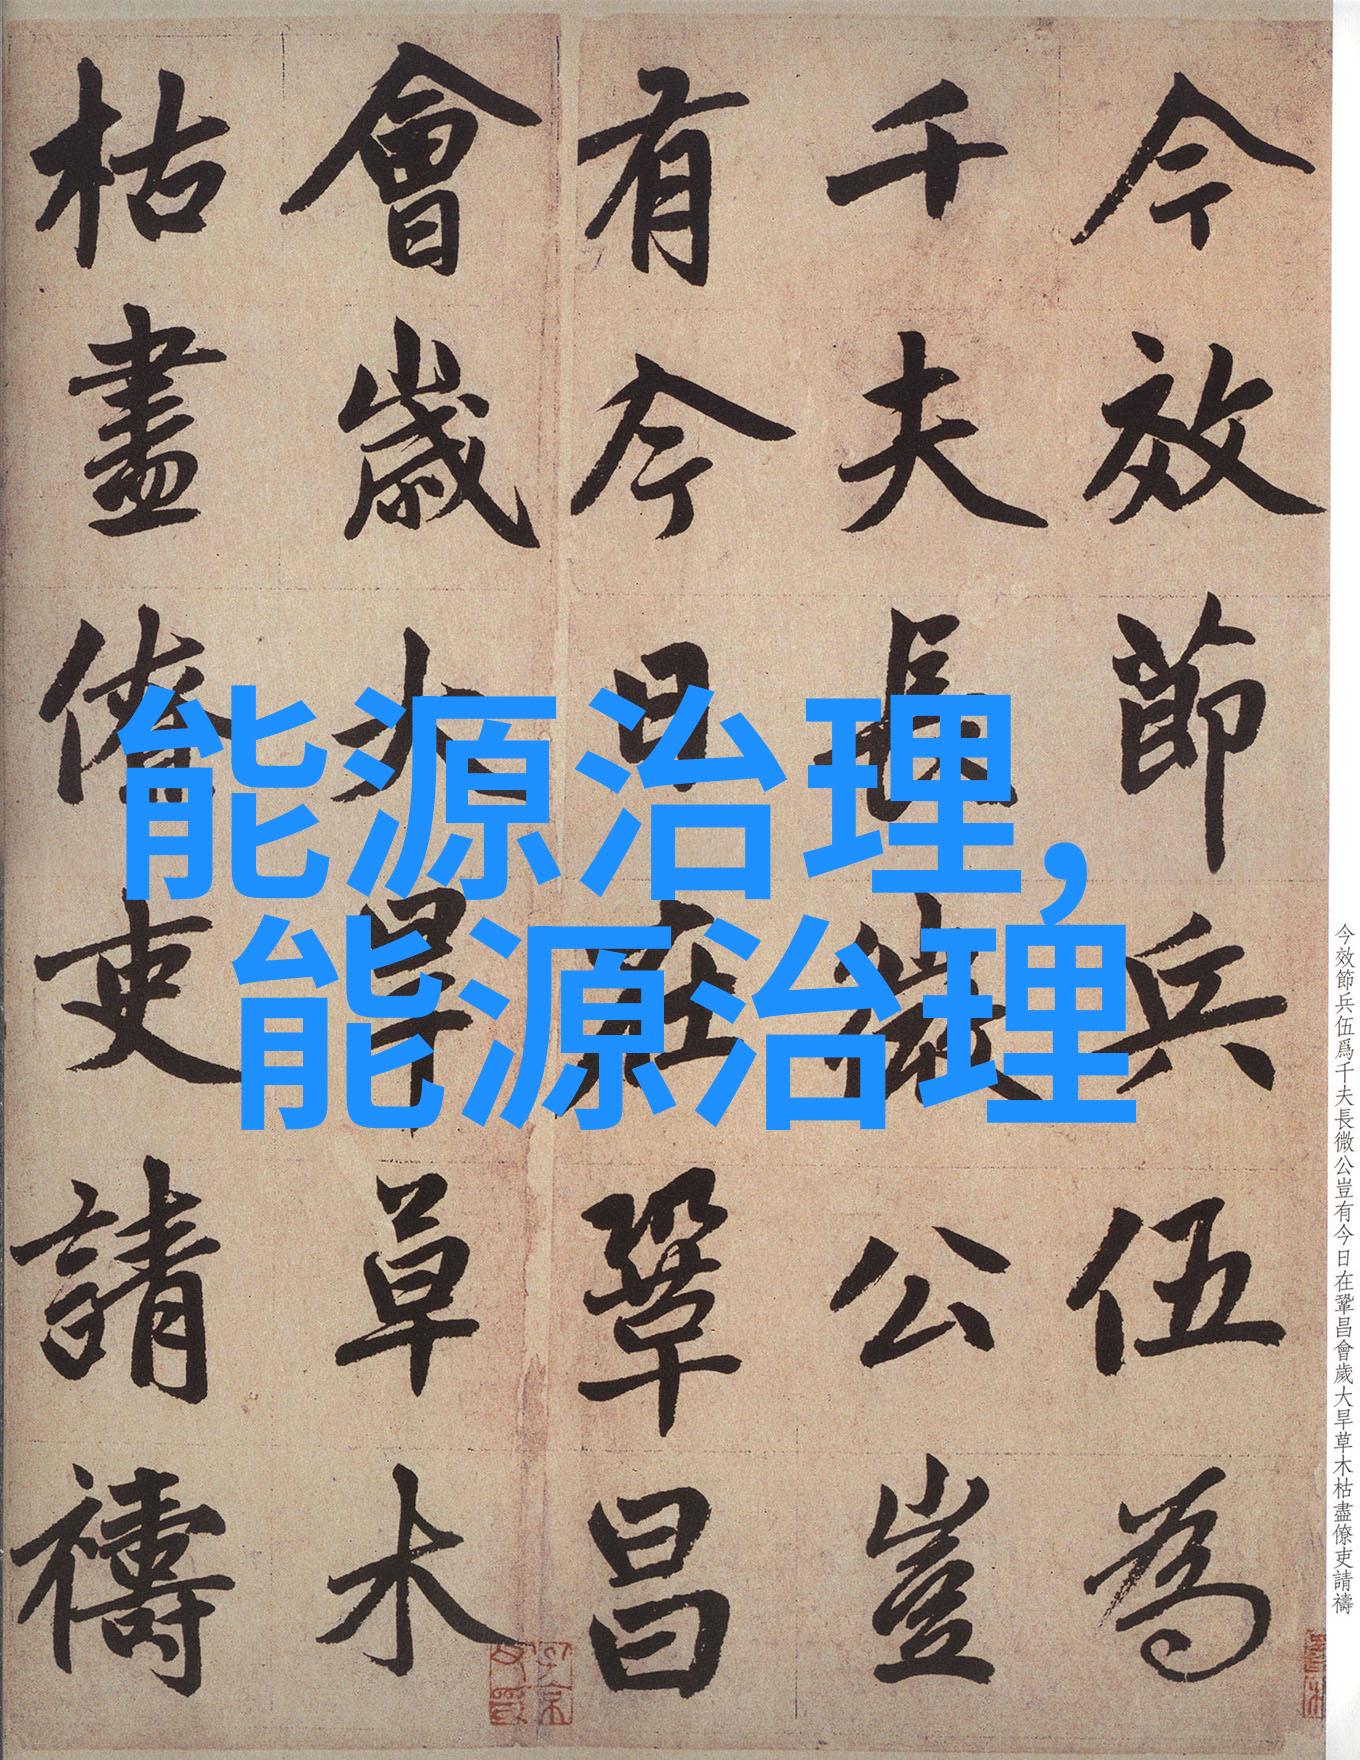 今效節兵伍為
千夫長微公豈
有今日在鞏昌
會歲大旱草木
枯盡僚吏請禱
能源治理，
能源治理
今效節兵伍爲千夫長微公豈有今日在鞏昌會歲大旱草木枯盡僚吏請禱